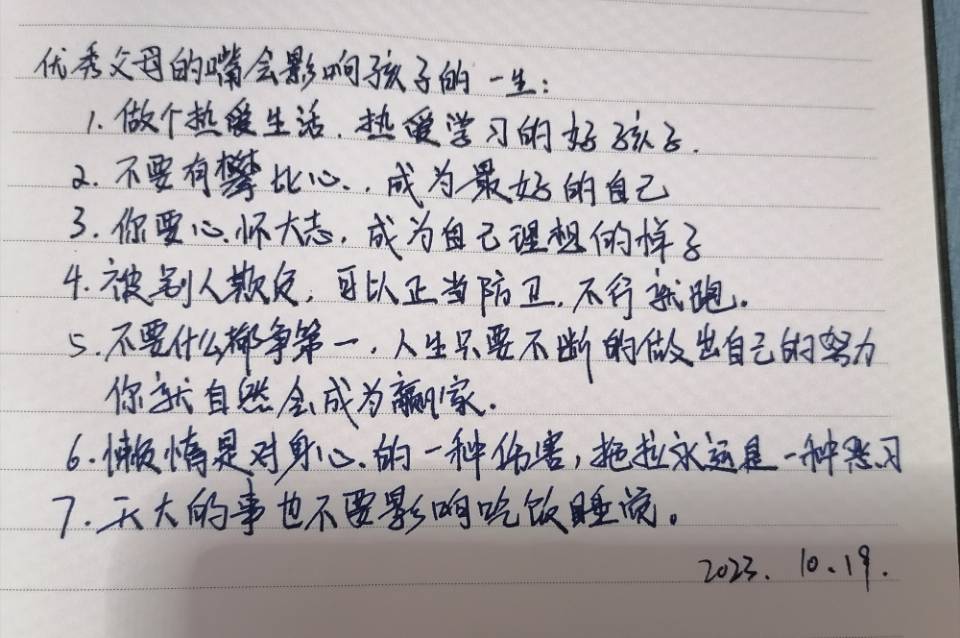 优秀父母的嘴会影响孩子的一生:
1. 做个热爱生活、热爱学习的好孩子.
2. 不要有攀比心, 成为最好的自己
3. 你要心怀大志, 成为自己理想的样子
4. 被别人欺负, 可以正当防卫, 不行就跑。
5. 不要什么都争第一, 人生只要不断的做出自己的努力
你就自然会成为赢家.
6. 懒惰是对身心的一种伤害, 拖拉永远是一种恶习
7. 天大的事也不要影响吃饭睡觉。
2023. 10.19.